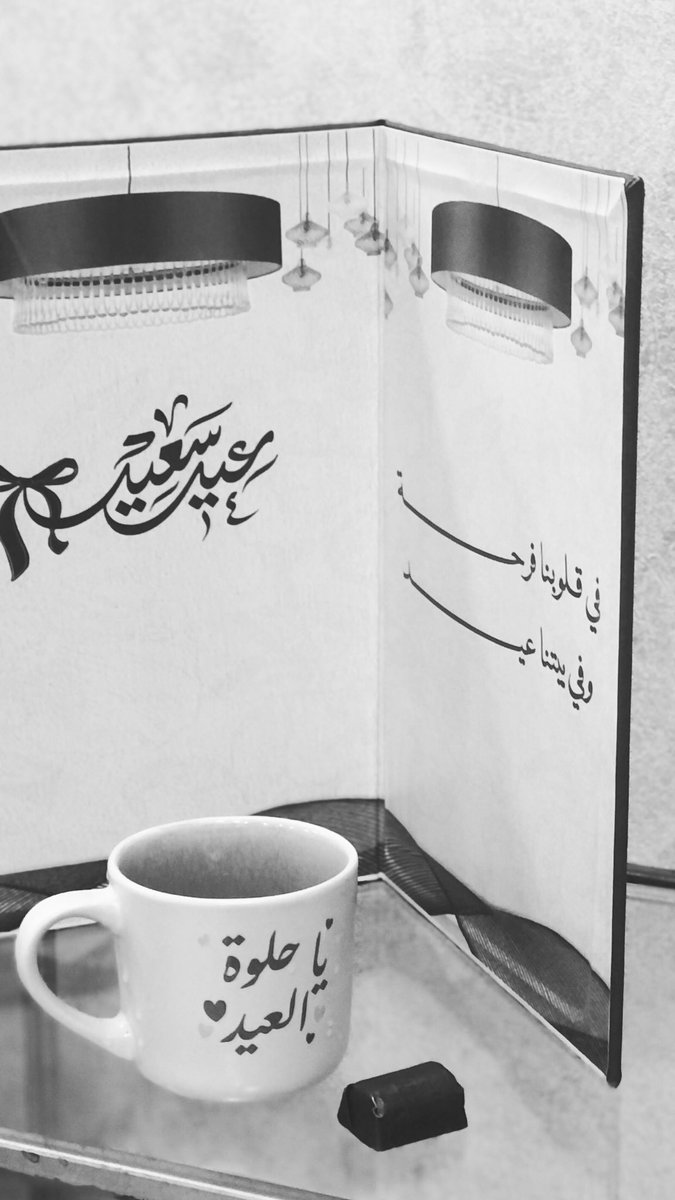 عيد سعيد
في قلوبنا فرحـــة
وفي بيتنا عيـــد
يا حلوة
العيد